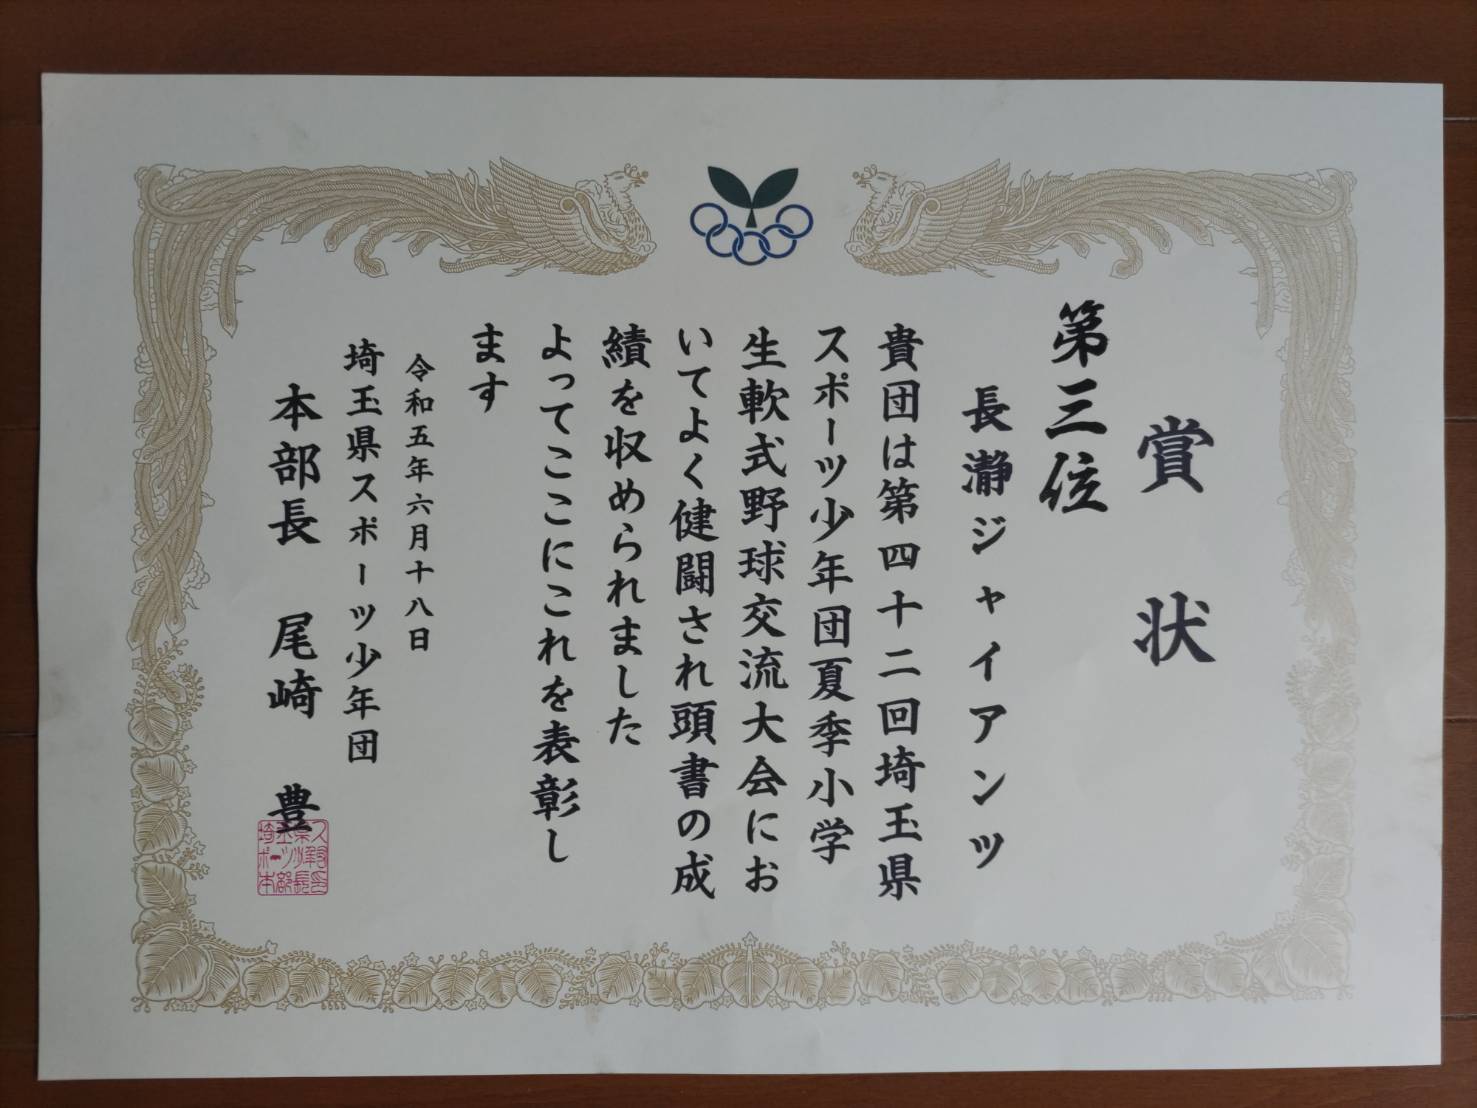 賞状
第三位
長瀞ジャイアンツ
貴団は第四十二回埼玉県
スポーツ少年団夏季小学
生軟式野球交流大会にお
いてよく健闘され頭書の成
績を収められました
よってここにこれを表彰し
ます
令和五年六月十八日
埼玉県スポーツ少年団
本部長 尾崎 豊